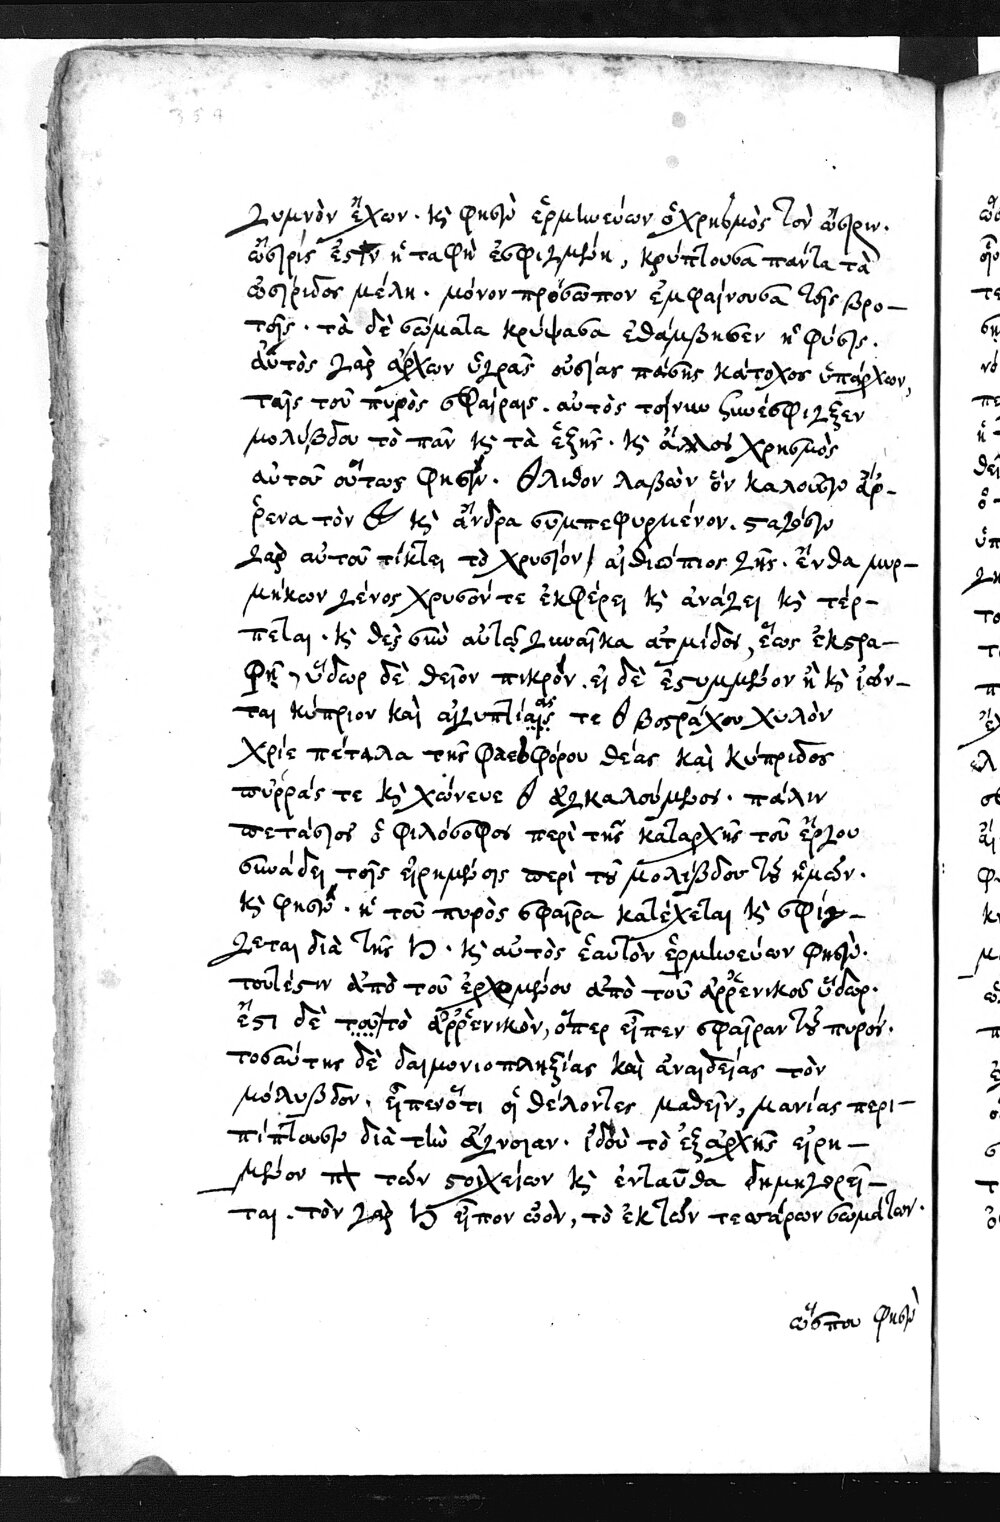 γυμνὸν ἔχων. κὶ φησὶν ἑρμηνεύων ὁ χρησμὸς τὸν ὤσιριν.
ὤσιρίς ἐστιν ἡ ταφὴ ἐσφιγμένη, κρύπτουσα πάντα τὰ
ὠσίριδος μέλη. μόνον πρόσωπον ἐμφαίνουσα τοῖς βρο-
τοῖς. τὰ δὲ σώματα κρύψασα ἐθάμβησεν ἡ φύσις.
αὐτὸς γὰρ ἄρχων ὑγρᾶς οὐσίας πάσης κάτοχος ὑπάρχων,
ταῖς τοῦ πυρὸς σφαίραις. αὐτὸς τοίνυν συνέσφιγξεν
μολύβδου τὸ πᾶν κὶ τὰ ἑξῆς. κὶ ἄλλος χρησμὸς
αὐτοῦ οὕτως φησὶν. λίθον λαβὼν ὃν καλοῦσιν ἄρ-
ρενα τὸν κὶ ἄνδρα συμπεφυρμένον. σταλάσιν
γὰρ αὐτοῦ τίκτει τὸ χρυσίον αἰθιώπιος γῆς. ἔνθα μυρ-
μήκων γένος χρυσόν τε ἐκφέρει κὶ ἀνάγει κὶ τέρ-
πεται. κὶ θὲς σὺν αὐτῷ γυναῖκα ἀτμίδος, ἕως ἐκστρα-
φῇ, ὕδωρ δὲ θεῖον πικρόν. εἰ δὲ ἐστυμμένον ἢ κὶ ἰῶν-
ται κύπριον καὶ αἰγυπτίας τε βοστρύχου χυλὸν
χρίε πέταλα τῆς φαεσφόρου θέας καὶ κύπριδος
πυρρᾶς τε κὶ χώνευε ἀγκαλούμενος. πάλιν
πετάσιος ὁ φιλόσοφος περὶ τῆς καταρχῆς τοῦ ἔργου
συνάδει τοῖς εἰρημένοις περὶ τοῦ μολίβδου τοῦ ἡμῶν.
κὶ φησὶν. ἡ τοῦ πυρὸς σφαῖρα κατέχεται κὶ σφίγ-
γεται διὰ τῆς ♄. κὶ αὐτὸς ἑαυτὸν ἑρμηνεύων φησίν.
τουτέστιν ἀπὸ τοῦ ἐρχομένου ἀπὸ τοῦ ἀρρενικοῦ ὕδωρ.
ἔστι δὲ τοῦ τὸ ἀρρενικὸν, ὅπερ εἶπεν σφαῖραν τοῦ πυρός.
τοσαύτης δὲ δαιμονιοπληξίας καὶ ἀναιδείας τὸν
μόλυβδον. εἶπεν ὅτι οἱ θέλοντες μαθεῖν, μανίας περι-
πίπτουσιν διὰ τὴν ἄγνοιαν. ἰδοὺ τὸ ἐξ ἀρχῆς εἰρη-
μένον περὶ τῶν στοιχείων κὶ ἐνταῦθα δημηγορεῖ-
ται. τὸν γὰρ ♄ εἶπον ὠὸν, τὸ ἐκ τῶν τεσσάρων σωμάτων.
ὥς που φησὶν